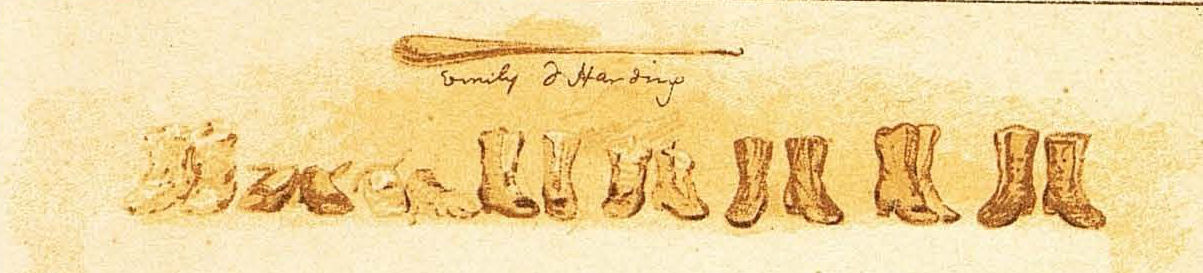 Emily J Harding